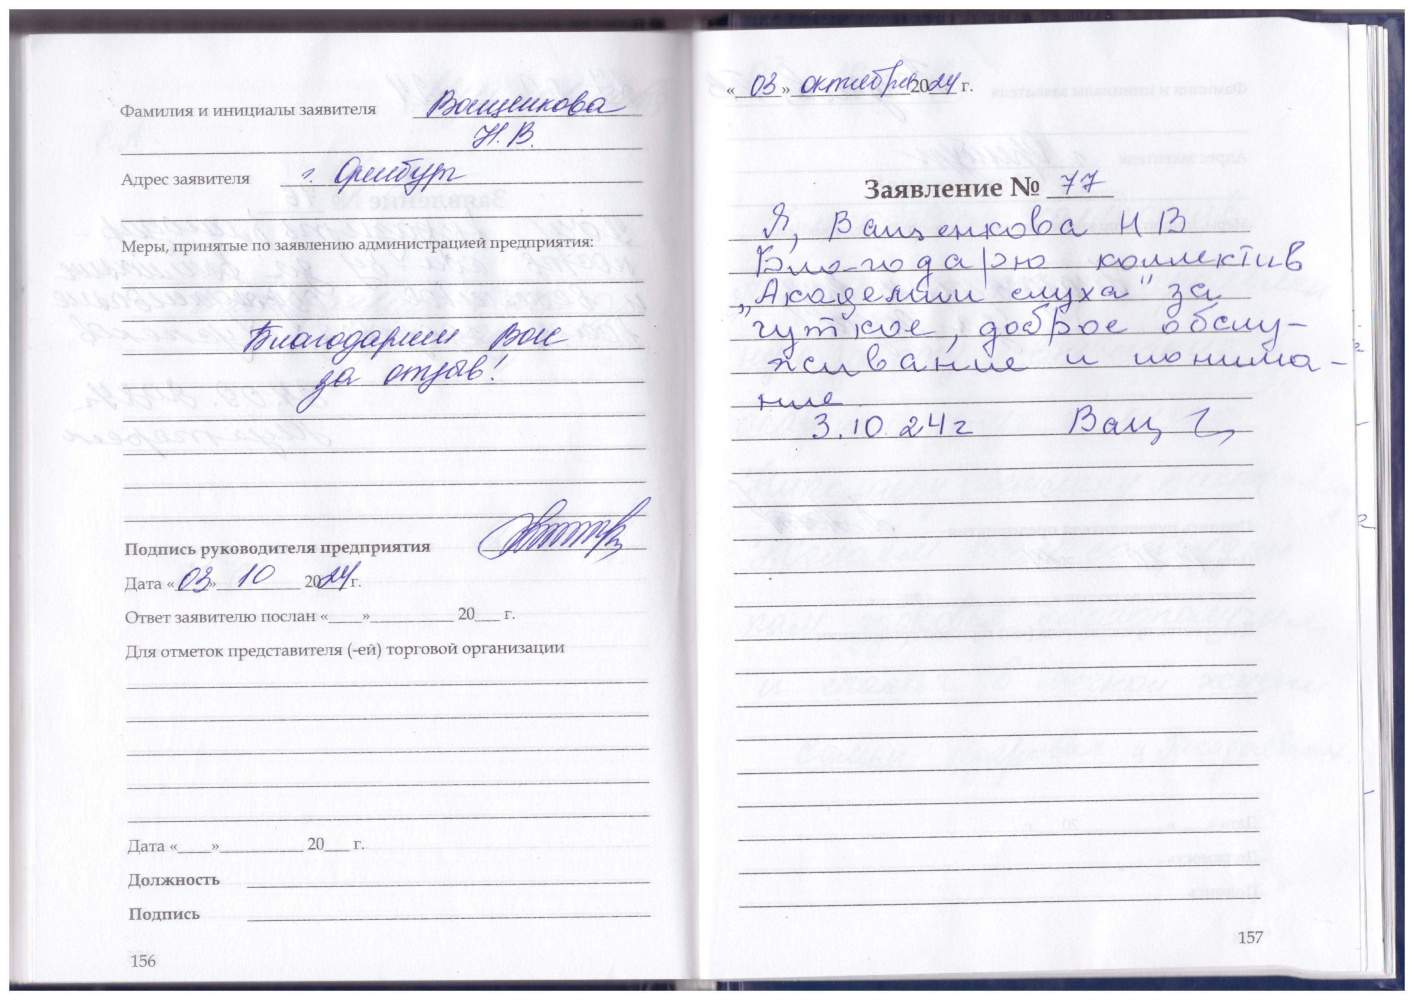 Фамилия и инициалы заявителя Ващенкова
Н.В.
Адрес заявителя г. Оренбург
Меры, принятые по заявлению администрацией предприятия:
Благодарим Вас
за отзыв!
Подпись руководителя предприятия
Дата «03» 10 2024 г.
Ответ заявителю послан «____»__________ 20___ г.
Для отметок представителя (-ей) торговой организации
Дата «____»__________ 20___ г.
Должность
Подпись
156
«03» октября 2024 г.
Заявление № 77
Я, Ващенкова Н В
Благодарю коллектив
"Академии слуха" за
чуткое, доброе обслу-
живание и понима-
ние.
3.10.24г Ващ
157